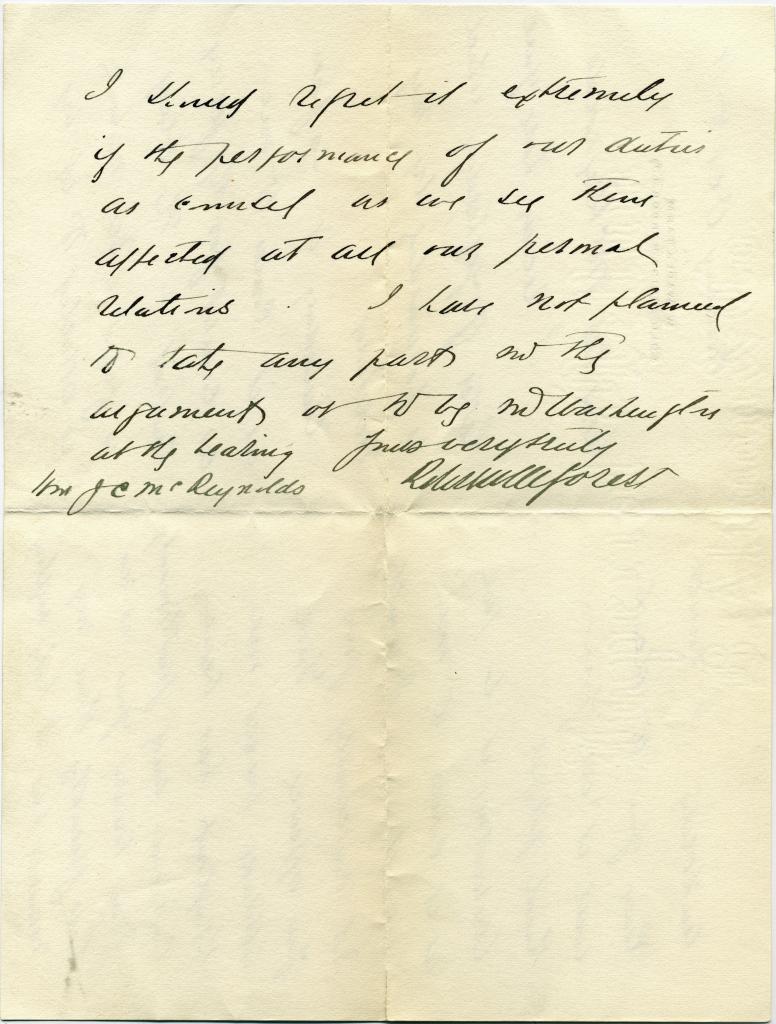 I should regret it extremely
if the performance of our duties
as counsel as we see them
affected at all our personal
relations. I have not planned
to take any part in the
argument or to be in Washington
at the hearing Yours very truly
Hon J C McReynolds Robt W de Forest